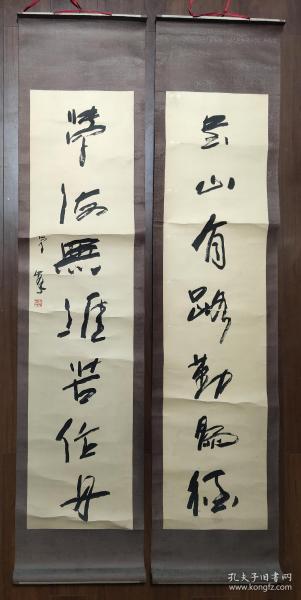 書山有路勤為徑
學海無涯苦作舟
孔夫子旧书网
www.kongfz.com